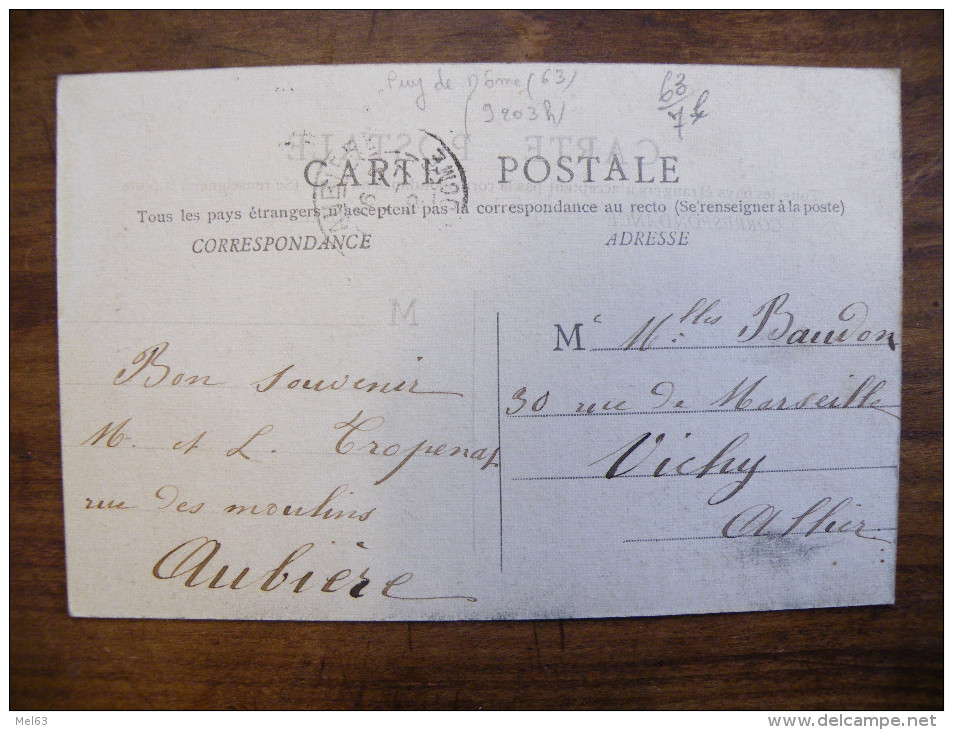 Puy de Dôme (63)
(9203h)
63
7f
CARTE POSTALE
Tous les pays étrangers n'acceptent pas la correspondance au recto (Se renseigner à la poste)
CORRESPONDANCE
ADRESSE
Bon souvenir
M. et L. Tropenat
rue des moulins
Aubière
M Mlles Baudon
30 rue de Marseille
Vichy
Allier
DOME
Mel63
http://www.delcampe.net